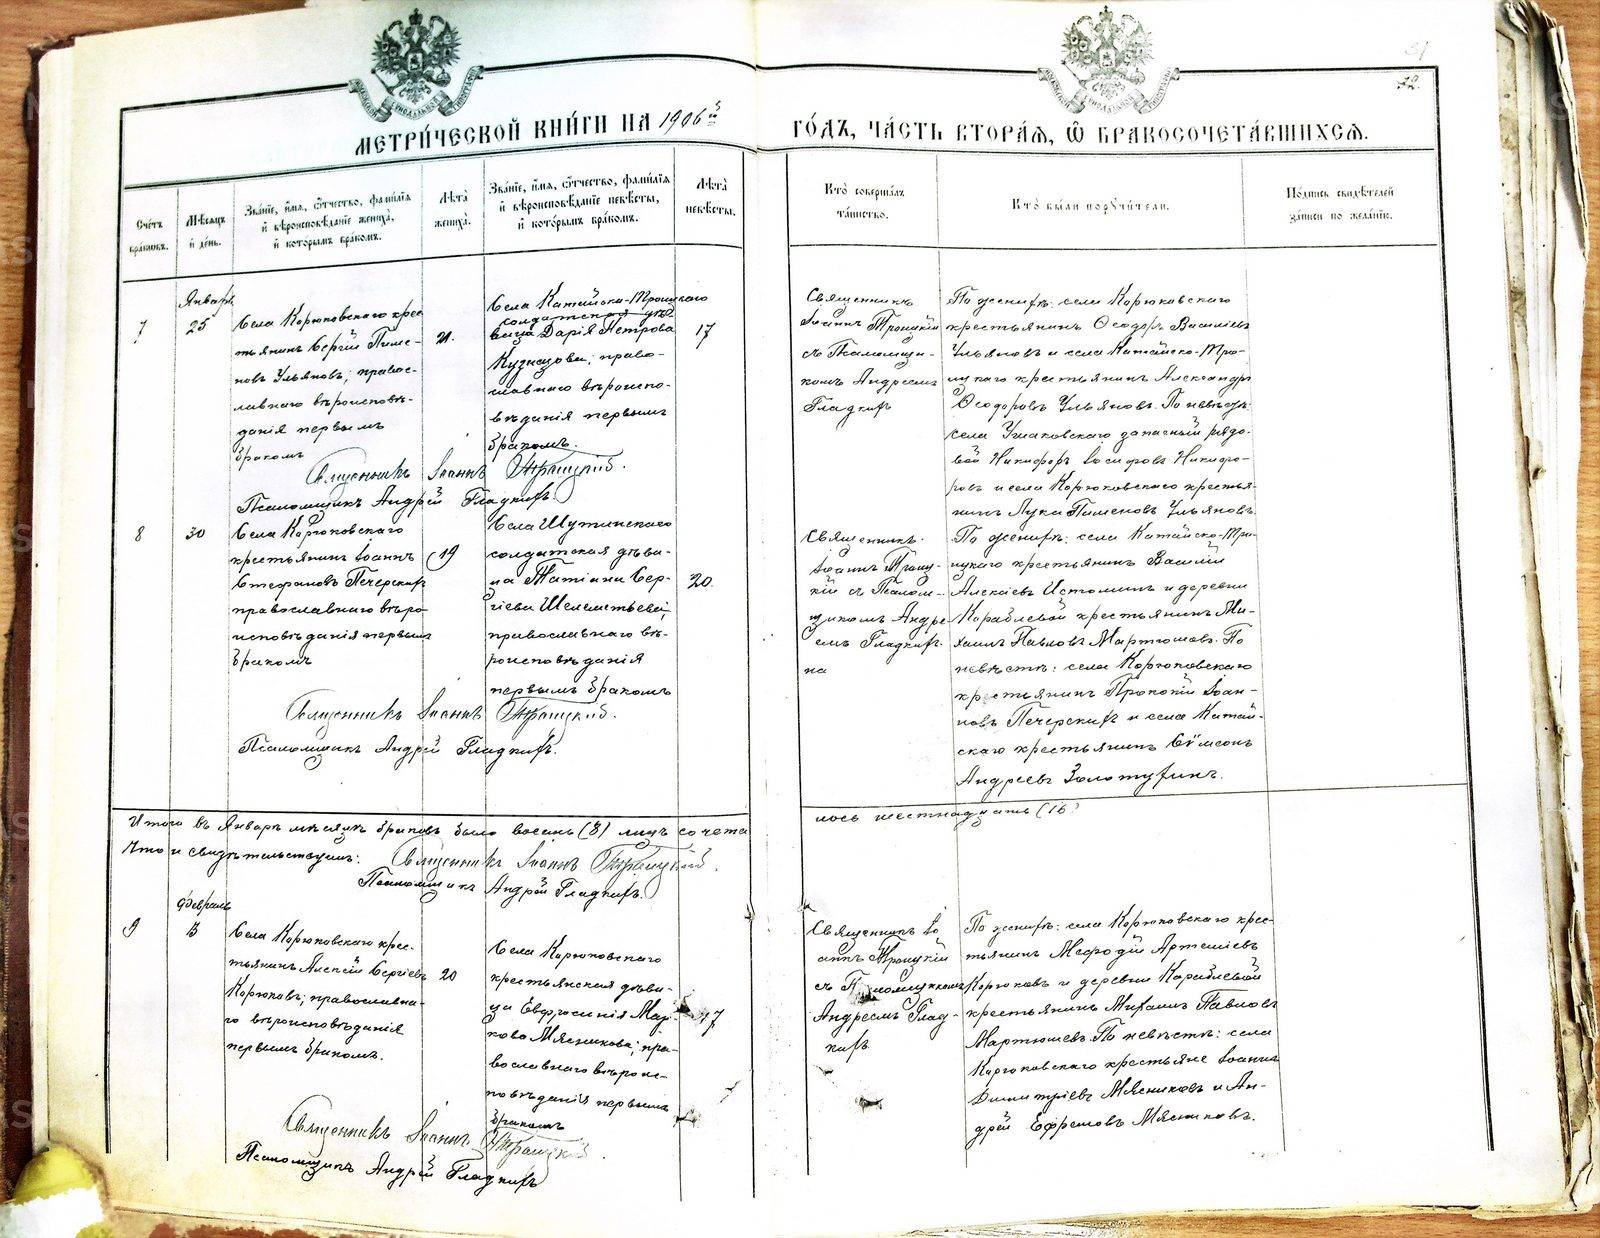 МЕТРИ́ЧЕСКОЙ КНИ́ГИ НА 1906 й
ГО́ДЪ, ЧА́СТЬ ВТОРА́Я, Ѿ БРАКОСОЧЕТА́ВШИХСЯ.
32.
Сче́тъ бра́ковъ.
Мѣ́сяцъ и҆ де́нь.
Зва́нїе, и҆́мя, ѻ҆́тчество, фами́лїя
и҆ вѣроисповѣ́данїе жениха̀,
и҆ кото́рымъ бра́комъ.
Лѣта̀ жениха̀.
Зва́нїе, и҆́мя, ѻ҆́тчество, фами́лїя
и҆ вѣроисповѣ́данїе невѣ́сты,
и҆ кото́рымъ бра́комъ.
Лѣта̀ невѣ́сты.
Кто̀ соверша́лъ
та́инство.
Кто̀ бы́ли порꙋчи́тели.
По́дпись свидѣ́телей
за́писи по жела́нїю.
Январь
7
25
Села Корюковскаго крес
тьянинъ Сергій Пиме-
новъ Ульяновъ; правос-
лавнаго вѣроисповѣ-
данія первымъ
бракомъ
21.
Села Катайско-Троицкаго
солдатская дѣ
вица Дарія Петрова
Кузнецова; право-
славнаго вѣроиспо-
вѣданія первымъ
бракомъ.
17
Священникъ Іоаннъ Троицкій.
Псаломщикъ Андрей Гладкихъ.
Священникъ
Іоаннъ Троицкій
съ Псаломщи-
комъ Андреемъ
Гладкихъ
По женихѣ: села Корюковскаго
крестьянинъ Ѳеодоръ Василіевъ
Ульяновъ и села Катайско-Тро-
ицкаго крестьянинъ Александръ
Ѳеодоровъ Ульяновъ. По невѣстѣ:
села Ушаковскаго запасный рядо-
вой Никифоръ Іосифовъ Никифо-
ровъ и села Корюковскаго крестья-
нинъ Лука Пименовъ Ульяновъ
8
30
Села Корюковскаго
крестьянинъ Іоаннъ
Стефановъ Печерскихъ
православнаго вѣро
исповѣданія первымъ
бракомъ
19
Села Шутинскаго
солдатская дѣви-
ца Татіана Сер-
гіева Шелеметьева;
православнаго вѣ-
роисповѣданія
первымъ бракомъ
20.
Священникъ Іоаннъ Троицкій.
Псаломщикъ Андрей Гладкихъ.
Священникъ
Іоаннъ Троиц-
кій съ Псалом-
щикомъ Андре
емъ Гладкихъ
на
По женихѣ: села Катайско-Тро-
ицкаго крестьянинъ Василій
Алексіевъ Истоминъ и деревни
Кораблевой крестьянинъ Ми-
хаилъ Павловъ Мартюшовъ. По
невѣстѣ: села Корюковскаго
крестьянинъ Прокопій Іоан-
новъ Печерскихъ и села Катай-
скаго крестьянинъ Сѵмеонъ
Андреевъ Золотухинъ.
Итого въ Январѣ мѣсяцѣ браковъ было восемь (8) лицъ сочета
лось шестнадцать (16)
Что и свидѣтельствуемъ: Священникъ Іоаннъ Троицкій.
Псаломщикъ Андрей Гладкихъ.
Февраль
9
5
Села Корюковскаго крес-
тьянинъ Алексій Сергіевъ
Корюковъ; православна-
го вѣроисповѣданія
первымъ бракомъ.
20
Села Корюковскаго
крестьянская дѣви-
ца Евфросинія Мар-
кова Мясникова; пра-
вославнаго вѣроис-
повѣданія первымъ
бракомъ
17
Священникъ Іоаннъ Троицкій.
Псаломщикъ Андрей Гладкихъ
Священникъ Іо
аннъ Троицкій
съ Псаломщикомъ
Андреемъ Глад-
кихъ
По женихѣ: села Корюковскаго крес-
тьянинъ Меѳодій Артеміевъ
Корюковъ и деревни Кораблевой
крестьянинъ Михаилъ Павловъ
Мартюшевъ. По невѣстѣ: села
Корюковскаго крестьяне Іоаннъ
Димитріевъ Мясниковъ и Ан-
дрей Ефремовъ Мясниковъ.